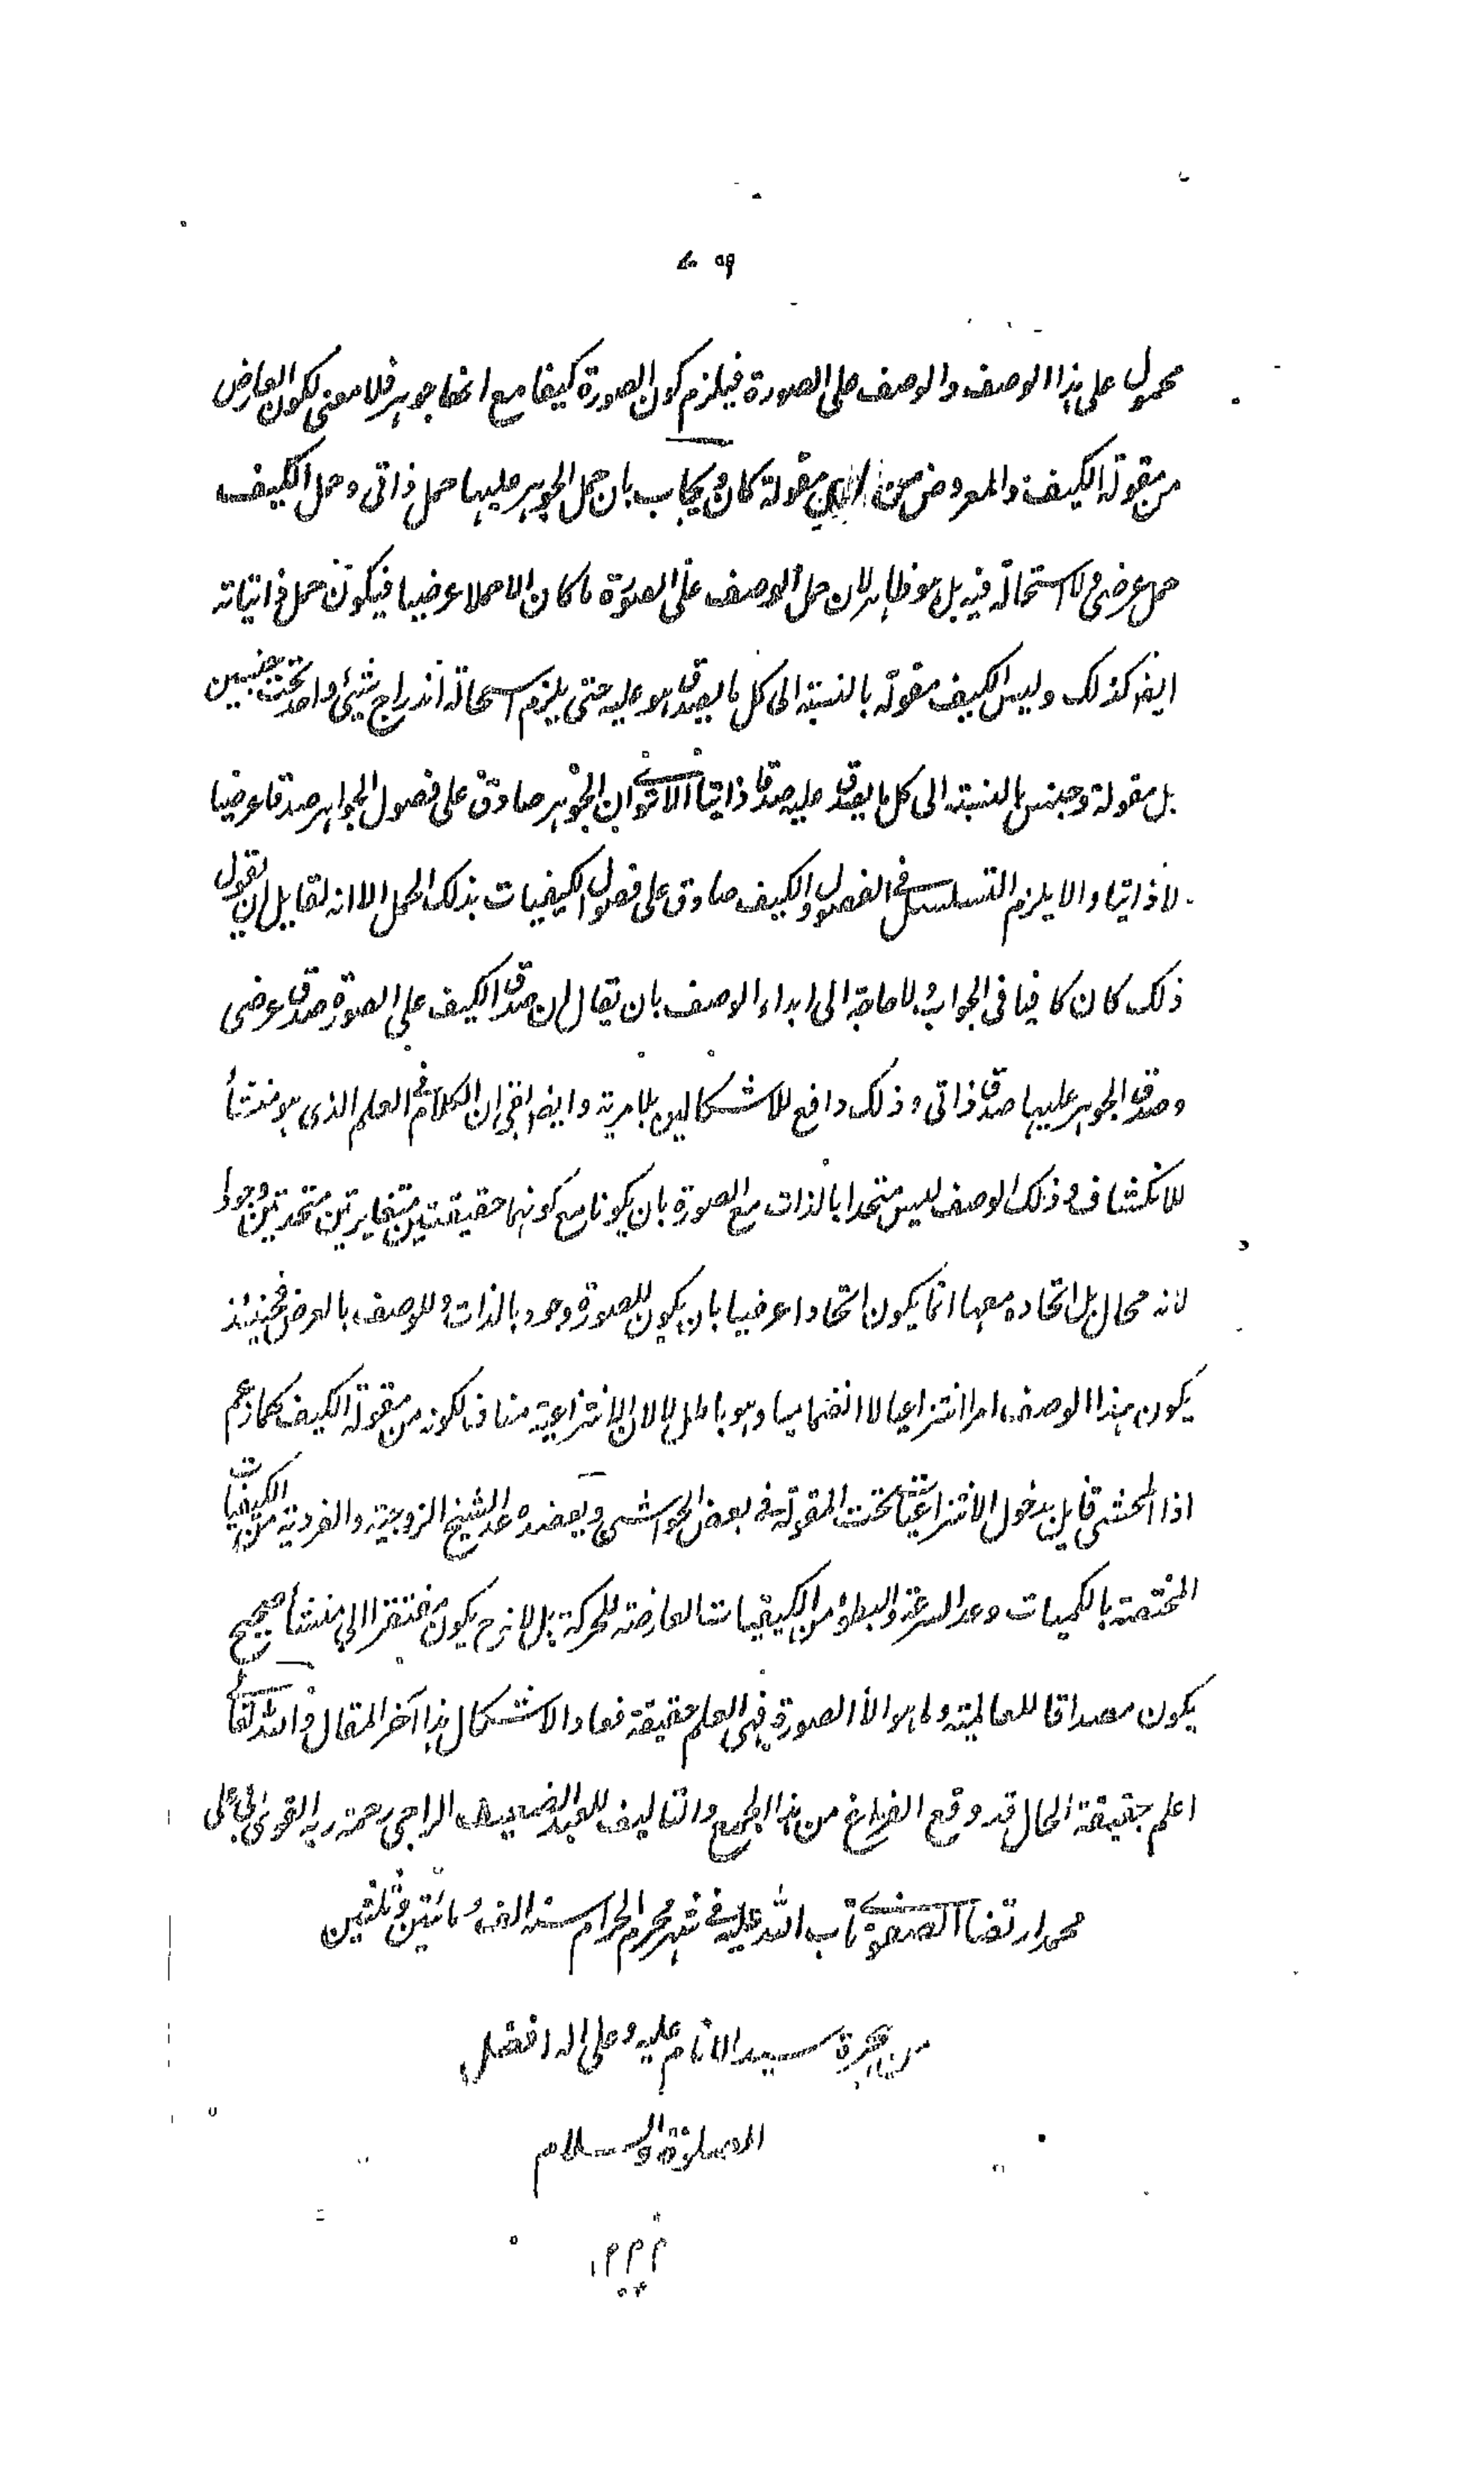 محمول على هذا الوصف والوصف على الصورة فيلزم كون الصورة كيفا مع انها جوهر فلا معنى لكون العارض
من مقولة الكيف والمعروض من مقولة كان ويجاب بان حمل الجوهر عليها حمل ذاتى وحمل الكيف
حمل عرضى ولا استحالة فيه بل هو ظاهر لان حمل الوصف على الصورة ما كان الا حملا عرضيا فيكون حمل ذاتياته
ايضا كذلك وليس الكيف مقولة بالنسبة الى كل ما يصدق هو عليه حتى يلزم استحالة اندراج شيئ واحد تحت جنسين
بل مقولة وجنس بالنسبة الى كل ما يصدق عليه صدقا ذاتيا الا ترى ان الجوهر صادق على فصول الجواهر صدقا عرضيا
لا ذاتيا والا يلزم التسلسل فى الفصول والكيف صادق على فصول الكيفيات بذلك الحمل الا انه لقايل ان يقول
ذلك كان كافيا فى الجواب ولا حاجة الى ابداء الوصف بان يقال ان صدق الكيف على الصورة صدق عرضى
وصدق الجوهر عليها صدق ذاتى وذلك دافع للاشكالين بلا مرية وايضا ان الكلام فى العلم الذى هو منشأ
للانكشاف وذلك الوصف ليس متحدا بالذات مع الصورة بان يكونا مع كونهما حقيقتين متغايرتين متحدتين وجودا
لانه محال بل اتحاده معها انما يكون اتحادا عرضيا بان يكون للصورة وجود بالذات وللوصف بالعرض فحينئذ
يكون هذا الوصف امرا انتزاعيا لا انضماميا وهو باطل لا لان الانتزاعية مناف لكونه من مقولة الكيف كما زعم
اذا المحشى قايل بدخول الانتزاعيات تحت المقولة فى بعض الحواشى ويعضده عد الشيخ الزوجية والفردية من الكيفيات
المختصة بالكميات وعد السرعة والبطؤ من الكيفيات العارضة للحركة بل لانه ح يكون مفتقرا الى منشأ صحيح
يكون مصداقا للعالمية وما هو الا الصورة فهى العلم حقيقة فعاد الاشكال هذا آخر المقال والله تعالى
اعلم بحقيقة الحال قد وقع الفراغ من هذا الجمع والتاليف للعبد الضعيف الراجى رحمة ربه القوى
محمد ارتضا الصفوى تاب الله عليه فى شهر محرم الحرام سنه الف ومائتين وثلثين
من هجرة سيد الانام عليه وعلى اله افضل
الصلوة والسلام